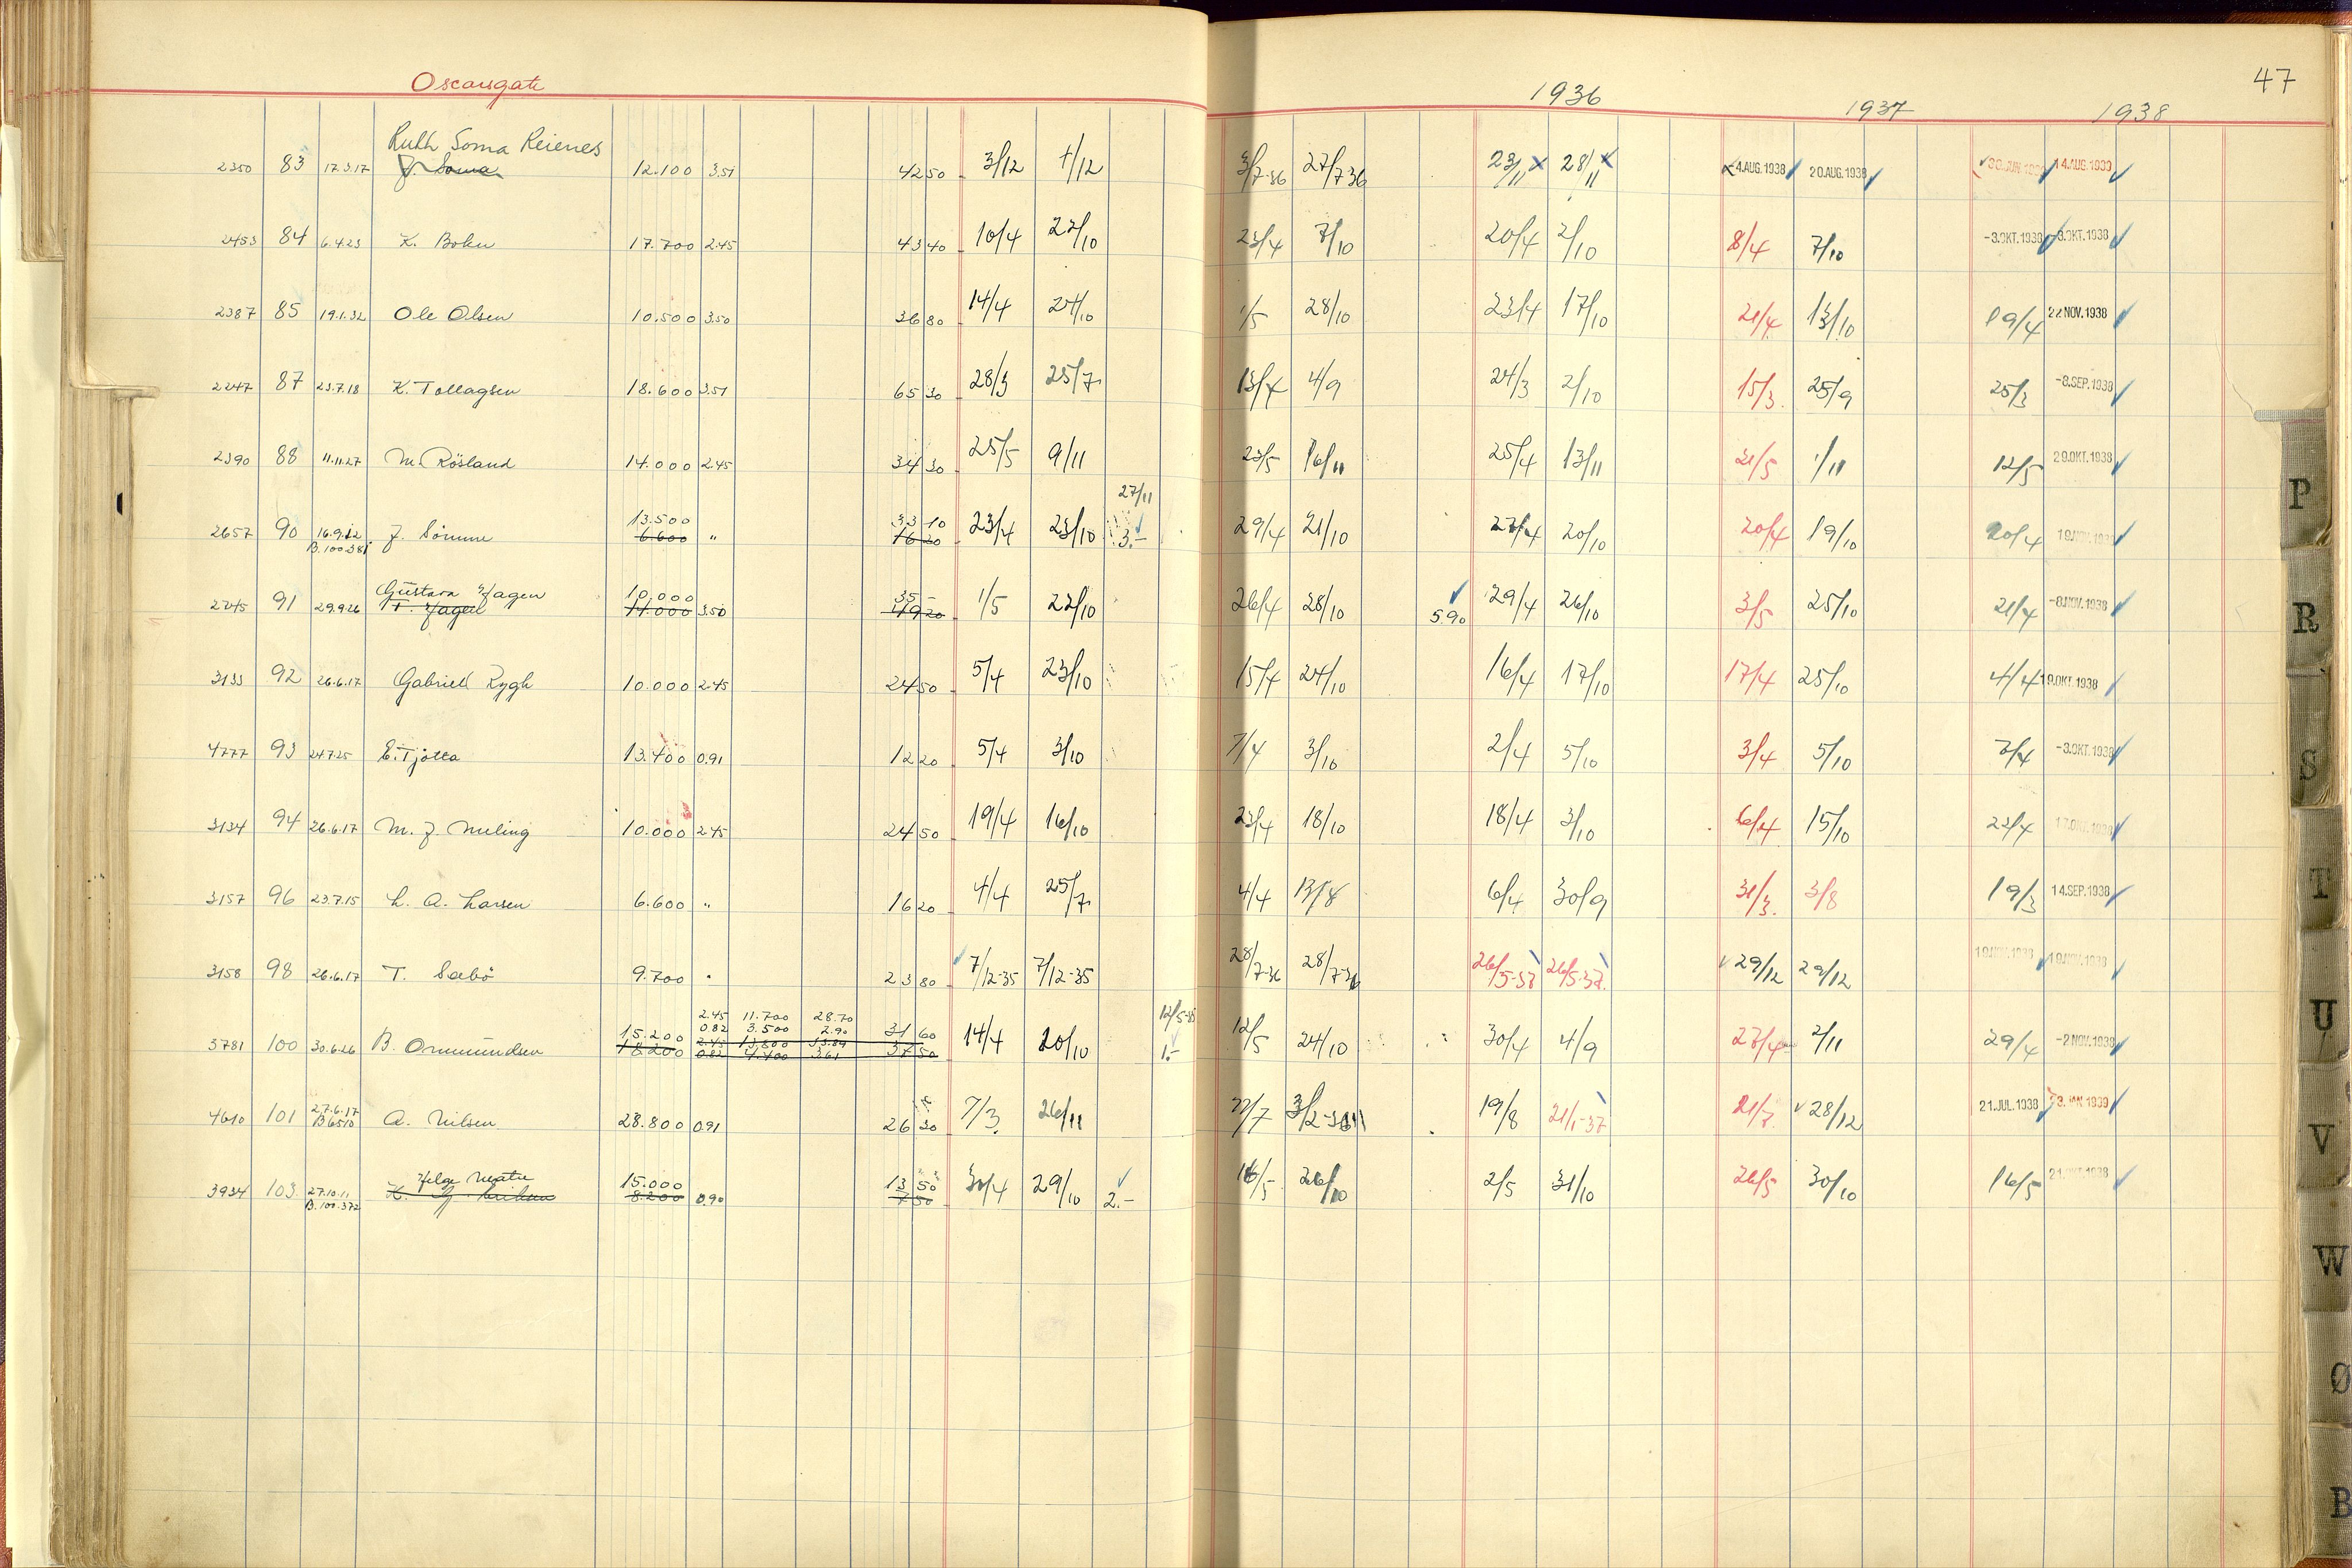 Oscarsgate 1936 1937 1938 47
Ruth Soma Reienes
2350 83 17.3.17 J. Soma 12.100 3.51 42 50 3/12 1/12 3/7-36 27/7 36 23/11 x 28/11 x 4.AUG.1938 20.AUG.1938 30.JUN.1939 14.AUG.1939
2453 84 6.4.23 K. Bohn 17.700 2.45 43 40 10/4 22/10 23/4 7/10 20/4 2/10 8/4 7/10 -3.OKT.1938 -3.OKT.1938
2387 85 19.1.32 Ole Olsen 10.500 3.50 36 80 14/4 24/10 1/5 28/10 23/4 17/10 21/4 13/10 19/4 22 NOV.1938
2247 87 23.7.18 K. Tollagsen 18.600 3.51 65 30 28/3 25/7 13/7 4/9 24/3 2/10 15/3 25/9 25/3 -8.SEP.1938
2390 88 11.11.27 M. Rösland 14.000 2.45 34 30 25/5 9/11 23/5 16/11 25/4 13/11 21/5 1/11 12/5 29.OKT.1938
13.500 33 10 27/11
2657 90 16.9.12 J. Sömme 6.600 " 16 20 23/4 23/10 3.- 29/4 21/10 27/4 20/10 20/4 19/10 20/4 19.NOV.1938
B.100.381
Gustava Hagen 10.000 35 -
2245 91 29.9.26 T. Hagen 14.000 3.50 49 20 1/5 22/10 26/4 28/10 5.90 29/4 26/10 3/5 25/10 21/4 -8.NOV.1938
3133 92 26.6.17 Gabriel Rygh 10.000 2.45 24 50 5/4 23/10 15/4 24/10 16/4 17/10 17/4 25/10 4/4 19.OKT.1938
4777 93 24.7.25 E. Tjötta 13.400 0.91 12 20 5/4 3/10 7/4 3/10 2/4 5/10 3/4 5/10 7/4 -3.OKT.1938
3134 94 26.6.17 M. J. Meling 10.000 2.45 24 50 19/4 16/10 23/4 18/10 18/4 3/10 6/4 15/10 22/4 17.OKT.1938
3157 96 23.7.15 L. A. Larsen 6.600 " 16 20 4/4 25/7 4/4 13/8 6/4 30/9 31/3 3/8 19/3 14.SEP.1938
3158 98 26.6.17 T. Sæbö 9.700 " 23 80 7/12-35 7/12-35 28/7-36 28/7-36 26/5-37 26/5-37 29/12 29/12 19.NOV.1938 19.NOV.1938
2.45 11.700 28.70 12/5-35
15.200 0.82 3.500 2.90 31 60
3781 100 30.6.26 B. Ommundsen 18.200 2.45 13.800 33.89 37 50 14/4 20/10 1.- 12/5 24/10 30/4 4/9 27/4 2/11 29/4 -2 NOV.1938
0.82 4.400 3.61
27.6.17
4610 101 B6510 A. Nilsen 28.800 0.91 26 30 7/3 26/11 22/7 3/2-36 19/8 21/1-37 21/7 28/12 21.JUL.1938 23.JAN 1939
Helge 15.000 13 50
3934 103 27.10.11 8.200 0.90 7 50 30/4 29/10 2.- 16/5 26/10 2/5 31/10 26/5 30/10 16/5 21.OKT.1938
B.100.372
P
R
S
T
U
V
W
Ø
B